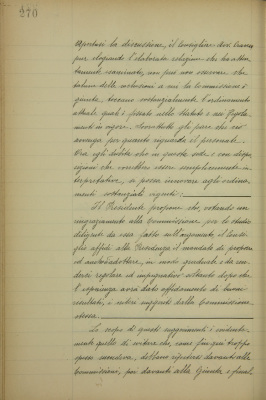 270
Apertasi la discussione, il Consigliere dott.
pur elogiando l'elaborata relazione che ha
esaminato, non può non osservare che
talune delle conclusioni a cui la Commissione è
giunta, toccano sostanzialmente l'ordinamento
attuale quale è fissato nello Statuto e nei Regola-
menti in vigore. Sovratutto gli pare che ciò
avvenga per quanto riguarda il personale.
Ora egli dubita che in questa sede e con dispo-
sizioni che vorrebbero essere semplicemente in-
terpretative, si possa innovare agli ordina-
menti sostanziali vigenti.
Il Presidente propone che, votando un
ringraziamento alla Commissione per lo studio
diligente da essa fatto sull'argomento, il Consi-
glio affidi alla Presidenza il mandato di
ed in modo graduale
regolare ed impegnativo soltanto dopo che
l'esperienza avrà dato affidamento di buoni
risultati, i criteri suggeriti dalla Commissione
stessa.
Lo scopo di questi suggerimenti è evidente-
mente quello di evitare che, come fin qui troppo
spesso avveniva, debbano ripetersi davanti alla
Commissioni, poi davanti alla Giunta e